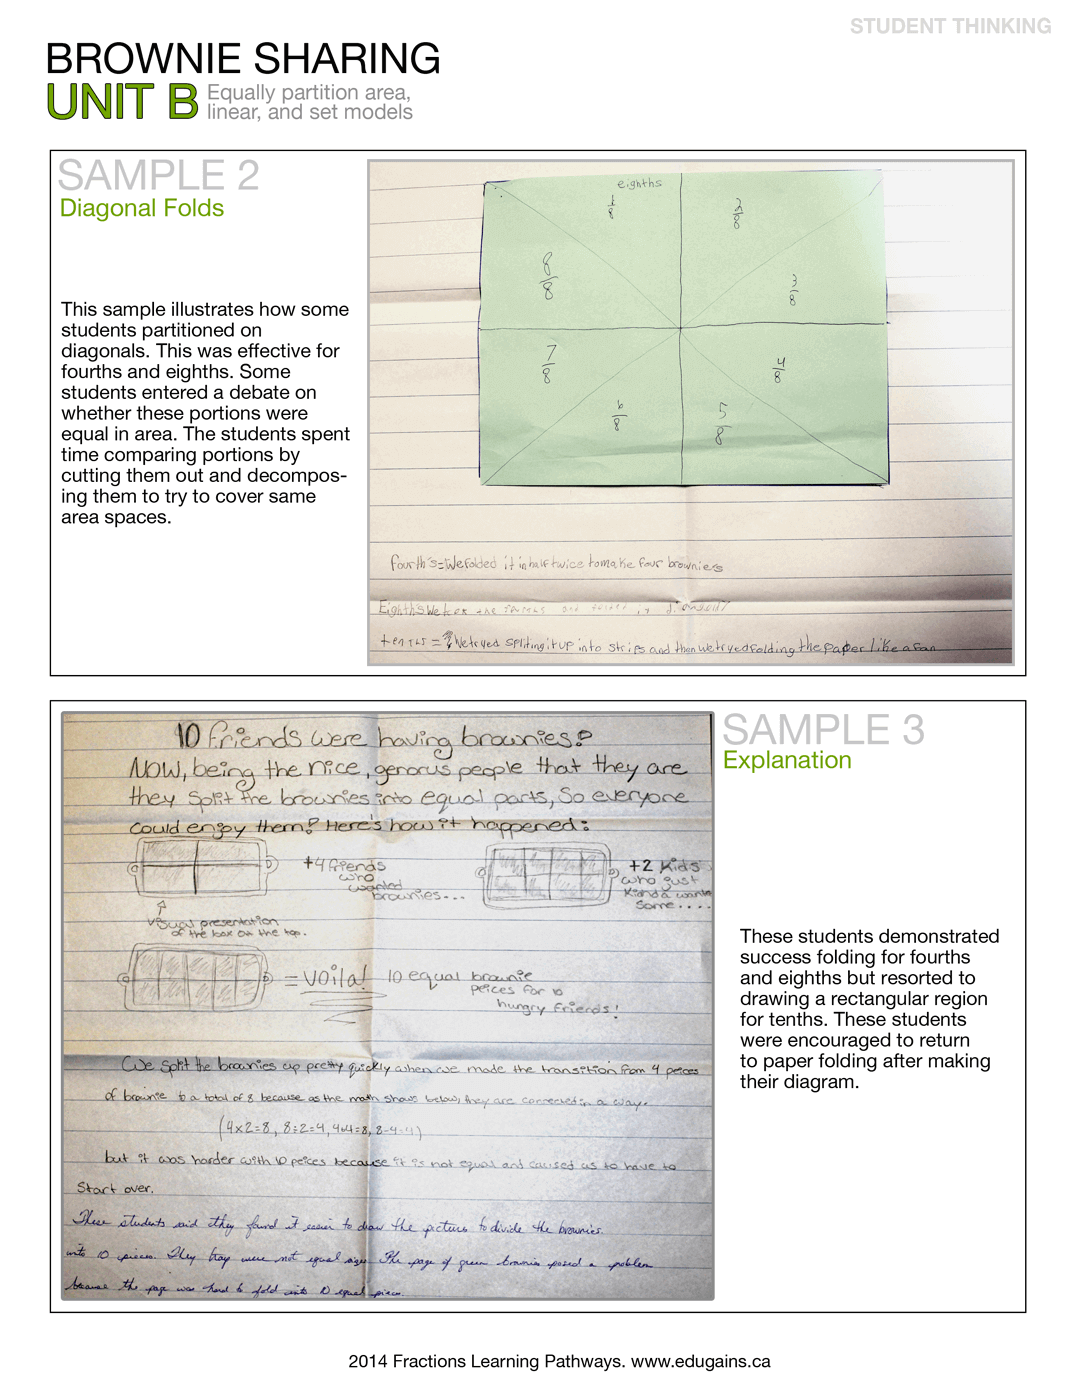 STUDENT THINKING
BROWNIE SHARING
UNIT B Equally partition area,
linear, and set models
SAMPLE 2
Diagonal Folds
This sample illustrates how some
students partitioned on
diagonals. This was effective for
fourths and eighths. Some
students entered a debate on
whether these portions were
equal in area. The students spent
time comparing portions by
cutting them out and decompos-
ing them to try to cover same
area spaces.
eighths
1/8
2/8
8/8
3/8
7/8
4/8
6/8
5/8
fourth's=We folded it in half twice to make four browniers
Eighths We the and
= ? We tryed spliting it up into strips and then we tryed folding the paper like a fan
10 friends were having brownies!
Now, being the nice, generous people that they are
they split the brownies into equal parts, so everyone
could enjoy them! Here's how it happened:
+4 friends
who
wanted
brownies...
+2 kids
who just
kinda wanted
some....
visual presentation
of the box on the top.
= voila! 10 equal brownie
peices for 10
hungry friends!
We split the brownies up pretty quickly when we made the transition from 4 peices
of brownie to a total of 8 because as the math shows below, they are connected in a way.
(4x2=8, 8÷2=4, 4+4=8, 8-4=4)
but it was harder with 10 peices because it is not equal and caused us to have to
start over.
These students said they found it easier to draw the picture to divide the brownies
into 10 pieces. They were not equal size. The page of green brownies posed a problem
because the page was hard to fold into 10 equal pieces.
SAMPLE 3
Explanation
These students demonstrated
success folding for fourths
and eighths but resorted to
drawing a rectangular region
for tenths. These students
were encouraged to return
to paper folding after making
their diagram.
2014 Fractions Learning Pathways. www.edugains.ca